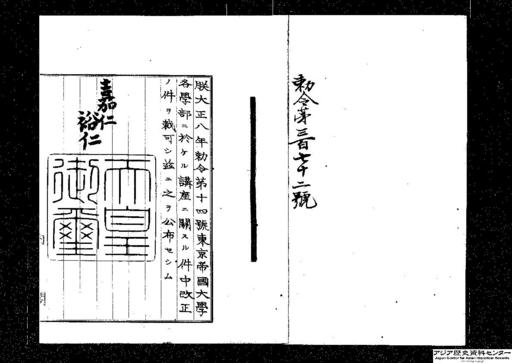 勅令第三百七十二號
朕大正八年勅令第十四號東京帝國大學
各學部ニ於ケル講座ニ關スル件中改正
ノ件ヲ裁可シ茲ニ之ヲ公布セシム
嘉仁
裕仁
天皇
御璽
アジア歴史資料センター
Japan Center for Asian Historical Records